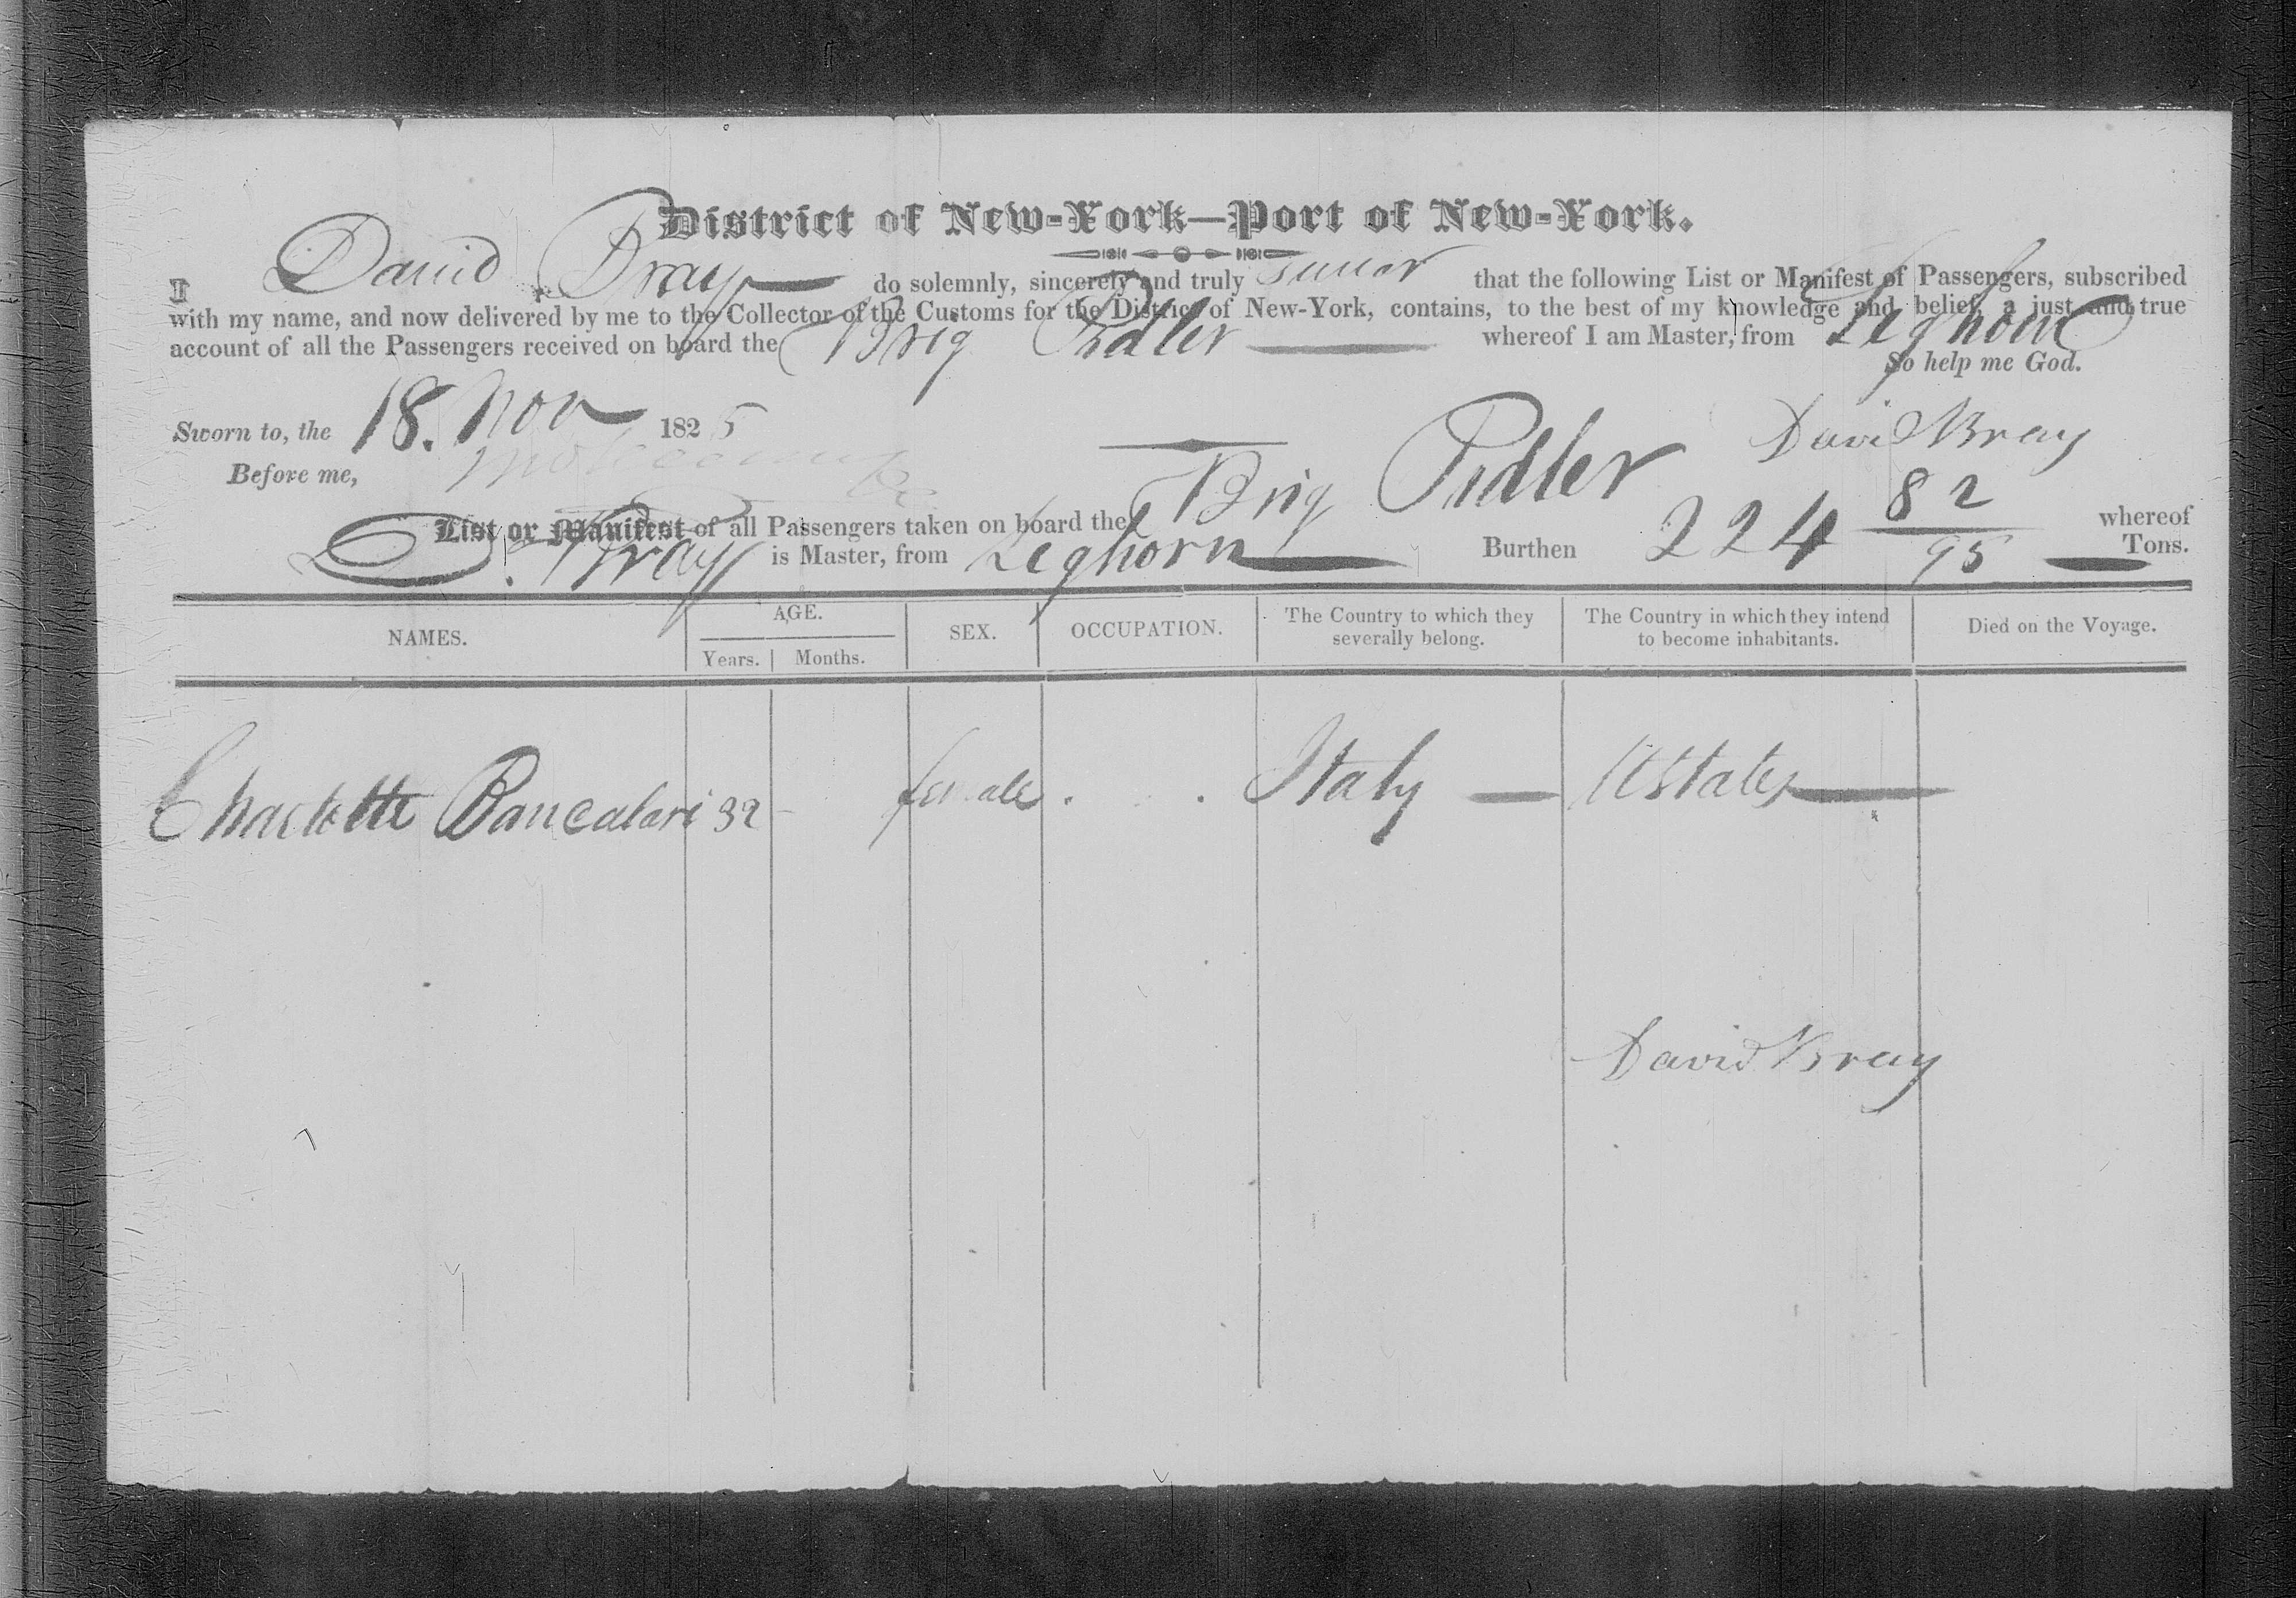 District of New-York—Port of New-York.
I David Bray do solemnly, sincerely and truly swear that the following List or Manifest of Passengers, subscribed
with my name, and now delivered by me to the Collector of the Customs for the District of New-York, contains, to the best of my knowledge and belief, a just and true
account of all the Passengers received on board the Brig Pedler whereof I am Master, from Leghorn
So help me God.
Sworn to, the 18. Nov 1825
David Bray
Before me,
List or Manifest of all Passengers taken on board the Brig Pedler whereof
D. Bray is Master, from Leghorn Burthen 224 82/95 Tons.
NAMES. AGE. SEX. OCCUPATION. The Country to which they severally belong. The Country in which they intend to become inhabitants. Died on the Voyage.
Years. Months.
Charlotte Bancalari 32 - female Italy — UStates —
David Bray